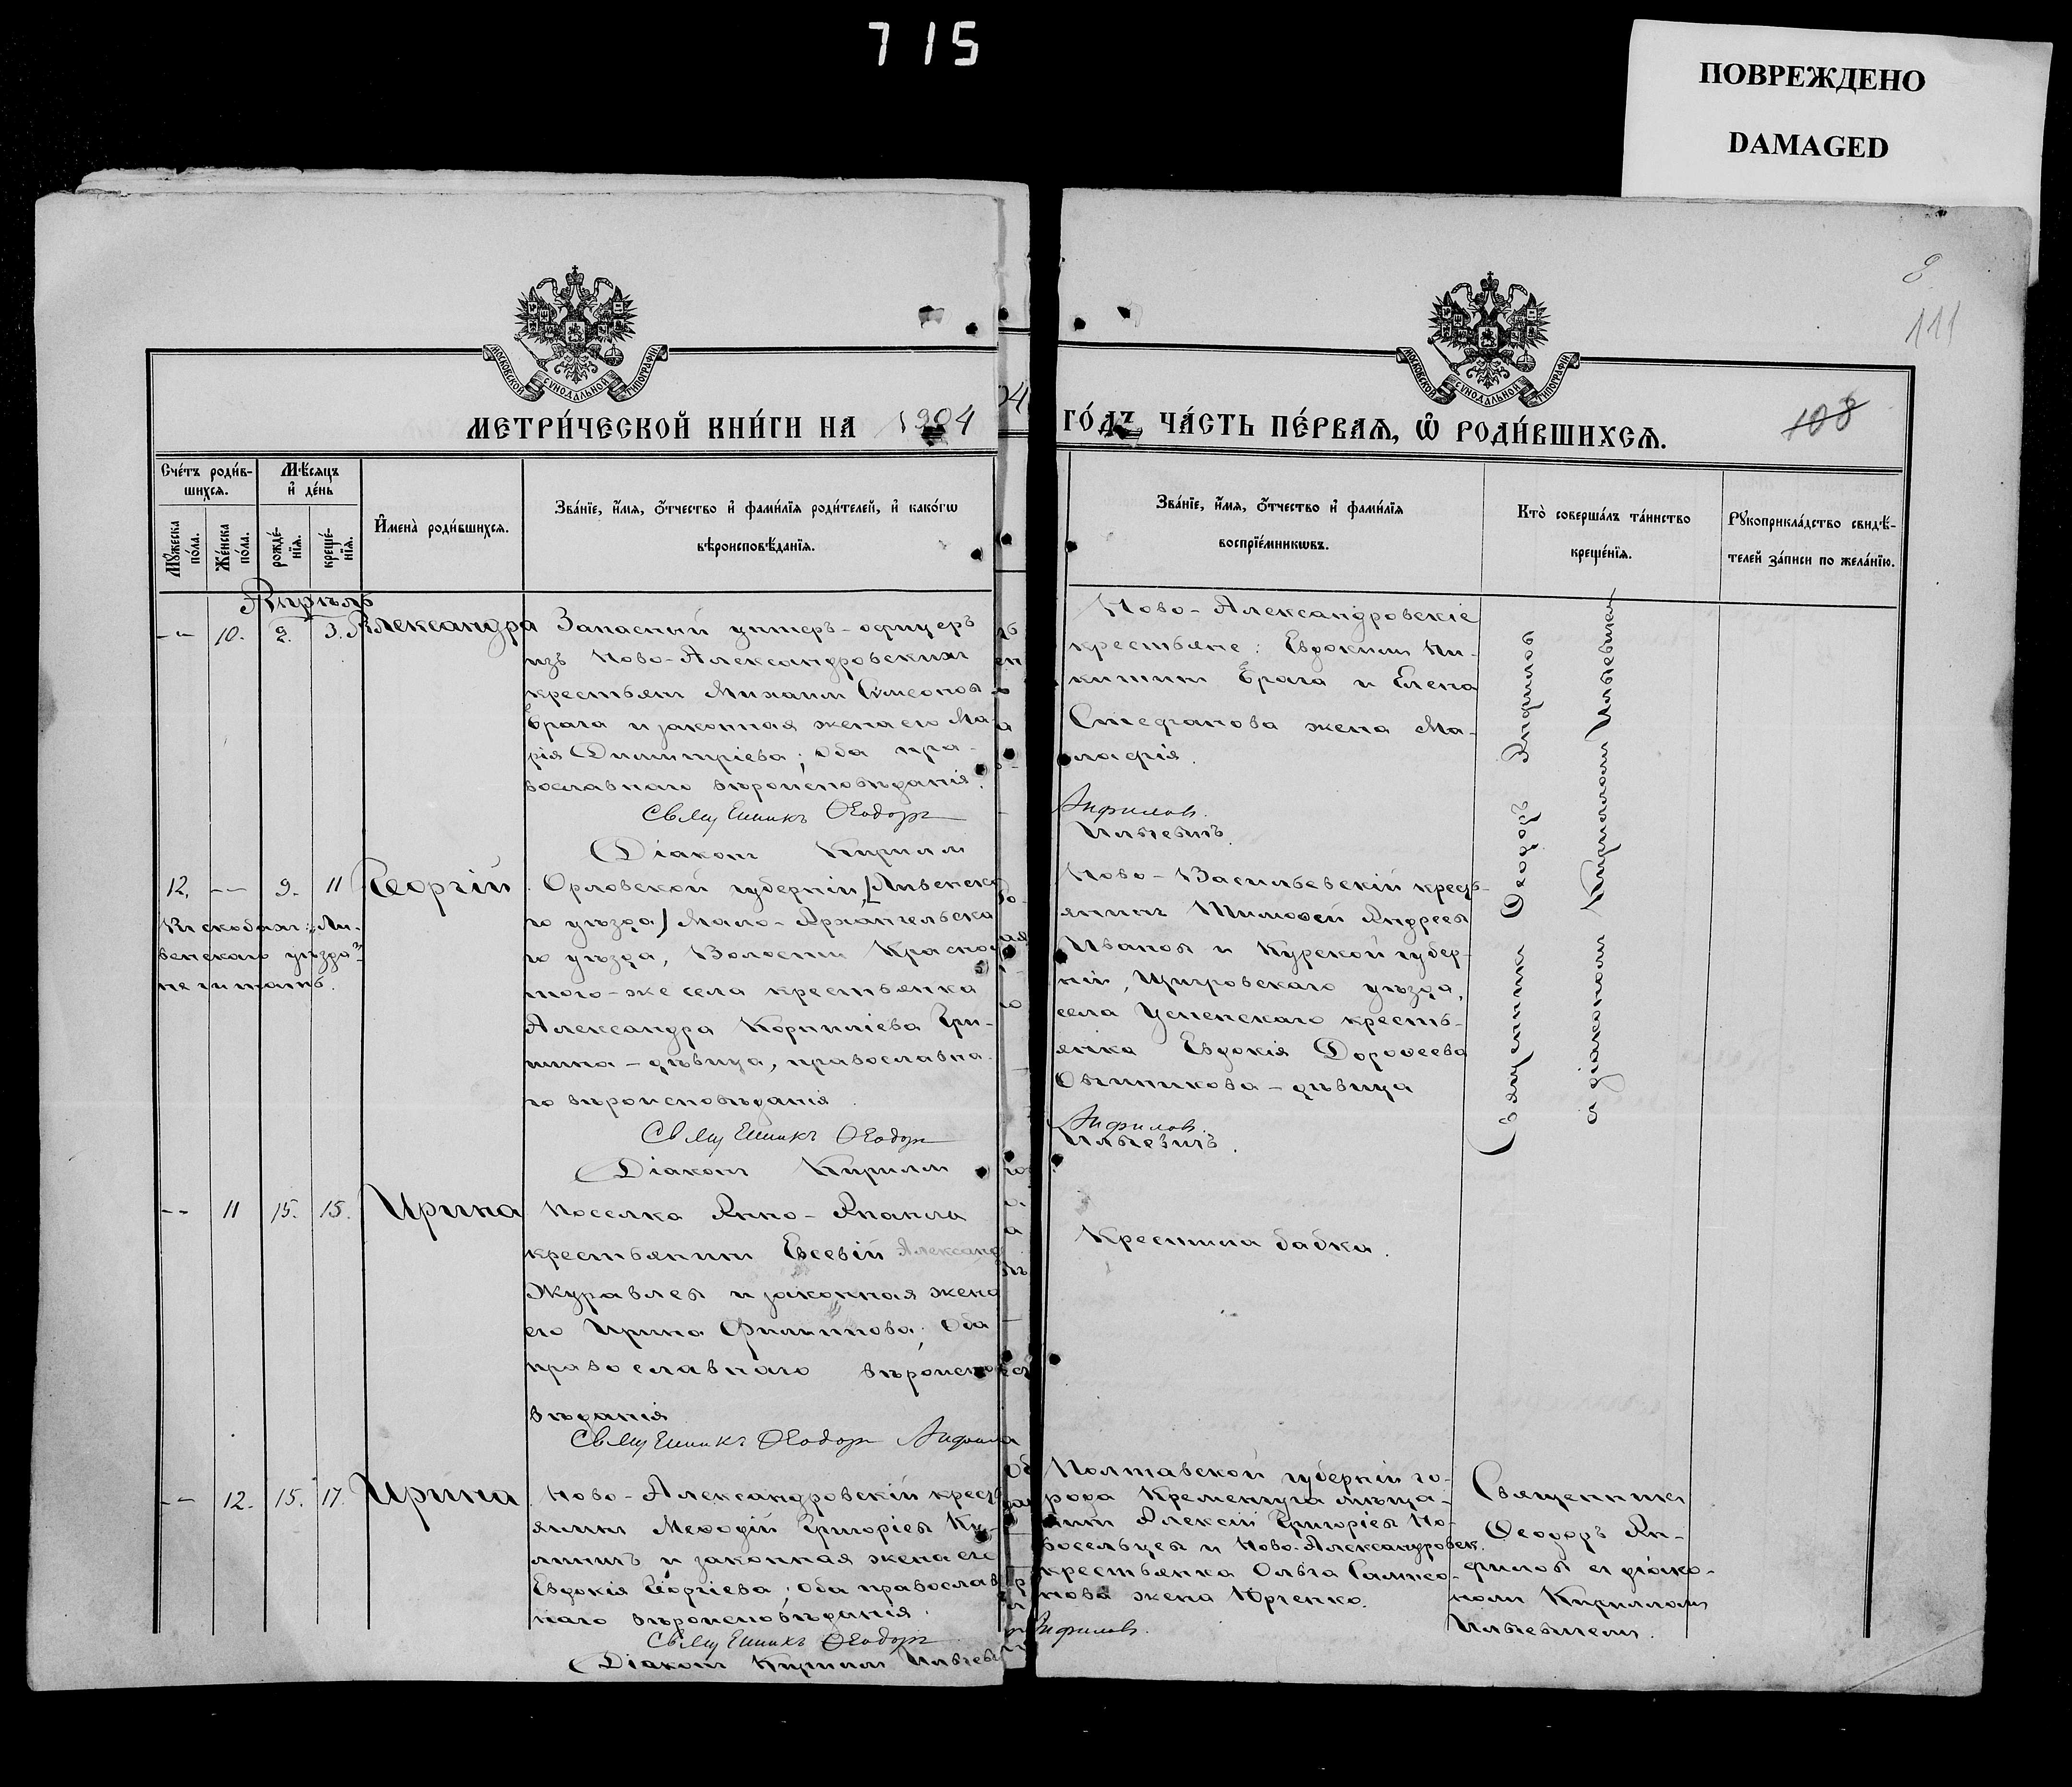 715
ПОВРЕЖДЕНО
DAMAGED
8
111
МОСКОВСКОЙ СѴНОДАЛЬНОЙ ТИПОГРАФІИ
МОСКОВСКОЙ СѴНОДАЛЬНОЙ ТИПОГРАФІИ
МЕТРИ́ЧЕСКОЙ КНИ́ГИ НА 1904
ГО́ДЪ, ЧА́СТЬ ПЕ́РВАѦ, Ѽ РОДИ́ВШИХСѦ.
108
Сче́тъ роди́в-
шихсѧ.
Мꙋ́жеска по́ла.
Же́нска по́ла.
Мѣ́сѧцъ
и҆ де́нь
рожде́-
нїѧ.
креще́-
нїѧ.
И҆мена̀ роди́вшихсѧ.
Зва́нїе, и҆́мѧ, ѻ҆́тчество и҆ фами́лїѧ роди́телей, и҆ како́гѡ
вѣроисповѣ́данїѧ.
Зва́нїе, и҆́мѧ, ѻ҆́тчество и҆ фами́лїѧ
воспрїе́мникѡвъ.
Кто̀ соверша́лъ та́инство
креще́нїѧ.
Рꙋкоприкла́дство свидѣ́-
телей за́писи по жела́нїю.
Апрѣль
-- 10. 2. 3. Александра
Запасный унтеръ-офицеръ
изъ Ново-Александровскихъ
крестьянъ Михаилъ Сѵмеоновъ
Брага и законная жена его Ма-
рія Димитріева; оба пра-
вославнаго вѣроисповѣданія.
Священникъ Ѳеодоръ
Діаконъ Кириллъ
Ново-Александровскіе
крестьяне: Евдокимъ Ни-
китинъ Брага и Елена
Стефанова жена Ма-
лафія.
Анфиловъ.
Ильевичъ.
Священникъ Ѳеодоръ Анфиловъ
съ діакономъ Кирилломъ Ильевичемъ
12. -- 9. 11 Георгій
Въ скобахъ: "Ли-
венскаго уѣзда"
не читать.
Орловской губерніи, /Ливенска
го уѣзда/ Мало-Архангельска
го уѣзда, Волости Красной
того-же села крестьянка
Александра Корниліева Гри-
шина - дѣвица, православна
го вѣроисповѣданія.
Священникъ Ѳеодоръ
Діаконъ Кириллъ
Ново-Васильевскій кресть-
янинъ Тимоѳей Андреевъ
Ивановъ и Курской губер-
ніи, Щигровскаго уѣзда,
села Успенскаго кресть-
янка Евдокія Дороѳеева
Овчиникова - дѣвица
Анфиловъ.
Ильевичъ.
-- 11 15. 15. Ирина
Поселка Анно-Опанла
крестьянинъ Евсевій Александ
Журавлевъ и законная жена
его Ирина Филиппова; оба
православнаго вѣроиспо-
вѣданія
Священникъ Ѳеодоръ Анфилов
Крестила бабка.
-- 12. 15. 17. Ирина
Ново-Александровскій кресть
янинъ Меѳодій Григорьевъ Ку-
линичъ и законная жена его
Евдокія Георгіева; оба православ
наго вѣроисповѣданія.
Священникъ Ѳеодоръ
Діаконъ Кириллъ Ильевич
Полтавской губерніи го-
рода Кременчуга мѣща-
нинъ Алексій Григорьевъ Но-
восельцевъ и Ново-Александровск.
крестьянка Ольга Сампсо-
нова жена Юрченко.
Анфиловъ.
Священникъ
Ѳеодоръ Ан-
филовъ съ діако-
номъ Кирилломъ
Ильевичемъ.